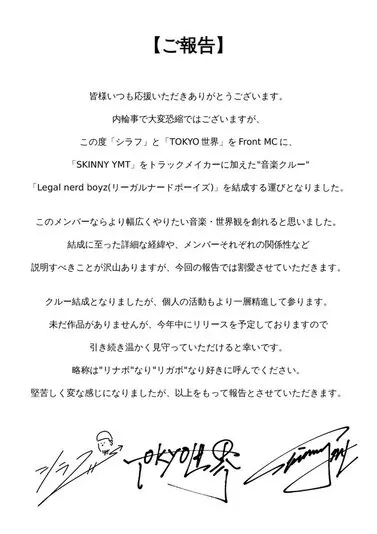 【ご報告】
皆様いつも応援いただきありがとうございます。
内輪事で大変恐縮ではございますが、
この度「シラフ」と「TOKYO世界」をFront MCに、
「SKINNY YMT」をトラックメイカーに加えた"音楽クルー"
「Legal nerd boyz(リーガルナードボーイズ)」を結成する運びとなりました。
このメンバーならより幅広くやりたい音楽・世界観を創れると思いました。
結成に至った詳細な経緯や、メンバーそれぞれの関係性など
説明すべきことが沢山ありますが、今回の報告では割愛させていただきます。
クルー結成となりましたが、個人の活動もより一層精進して参ります。
未だ作品がありませんが、今年中にリリースを予定しておりますので
引き続き温かく見守っていただけると幸いです。
略称は"リナボ"なり"リガボ"なり好きに呼んでください。
堅苦しく変な感じになりましたが、以上をもって報告とさせていただきます。
シラフ TOKYO世界 Skinny ymt